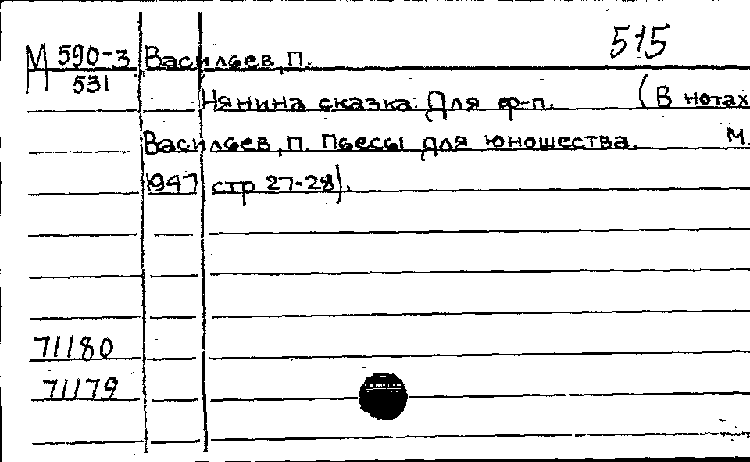 515
М 590-3 Васильев, П.
531
Нянина сказка. Для ф-п. (В нотах
Васильев, П. Пьесы для юношества. М.
1947 стр 27-28).
71180
71179